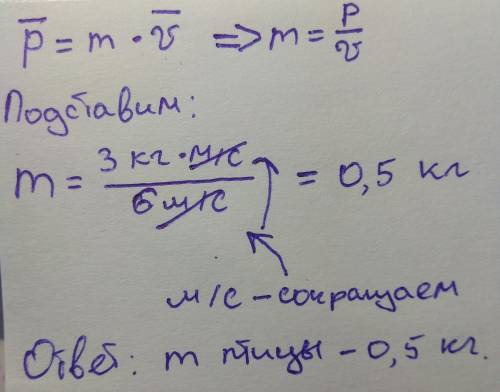 p̅ = m · v̅ => m = p/v
Подставим:
m = 3 кг · м/с / 6 м/с = 0,5 кг
м/с – сокращаем
Ответ: m птицы – 0,5 кг.